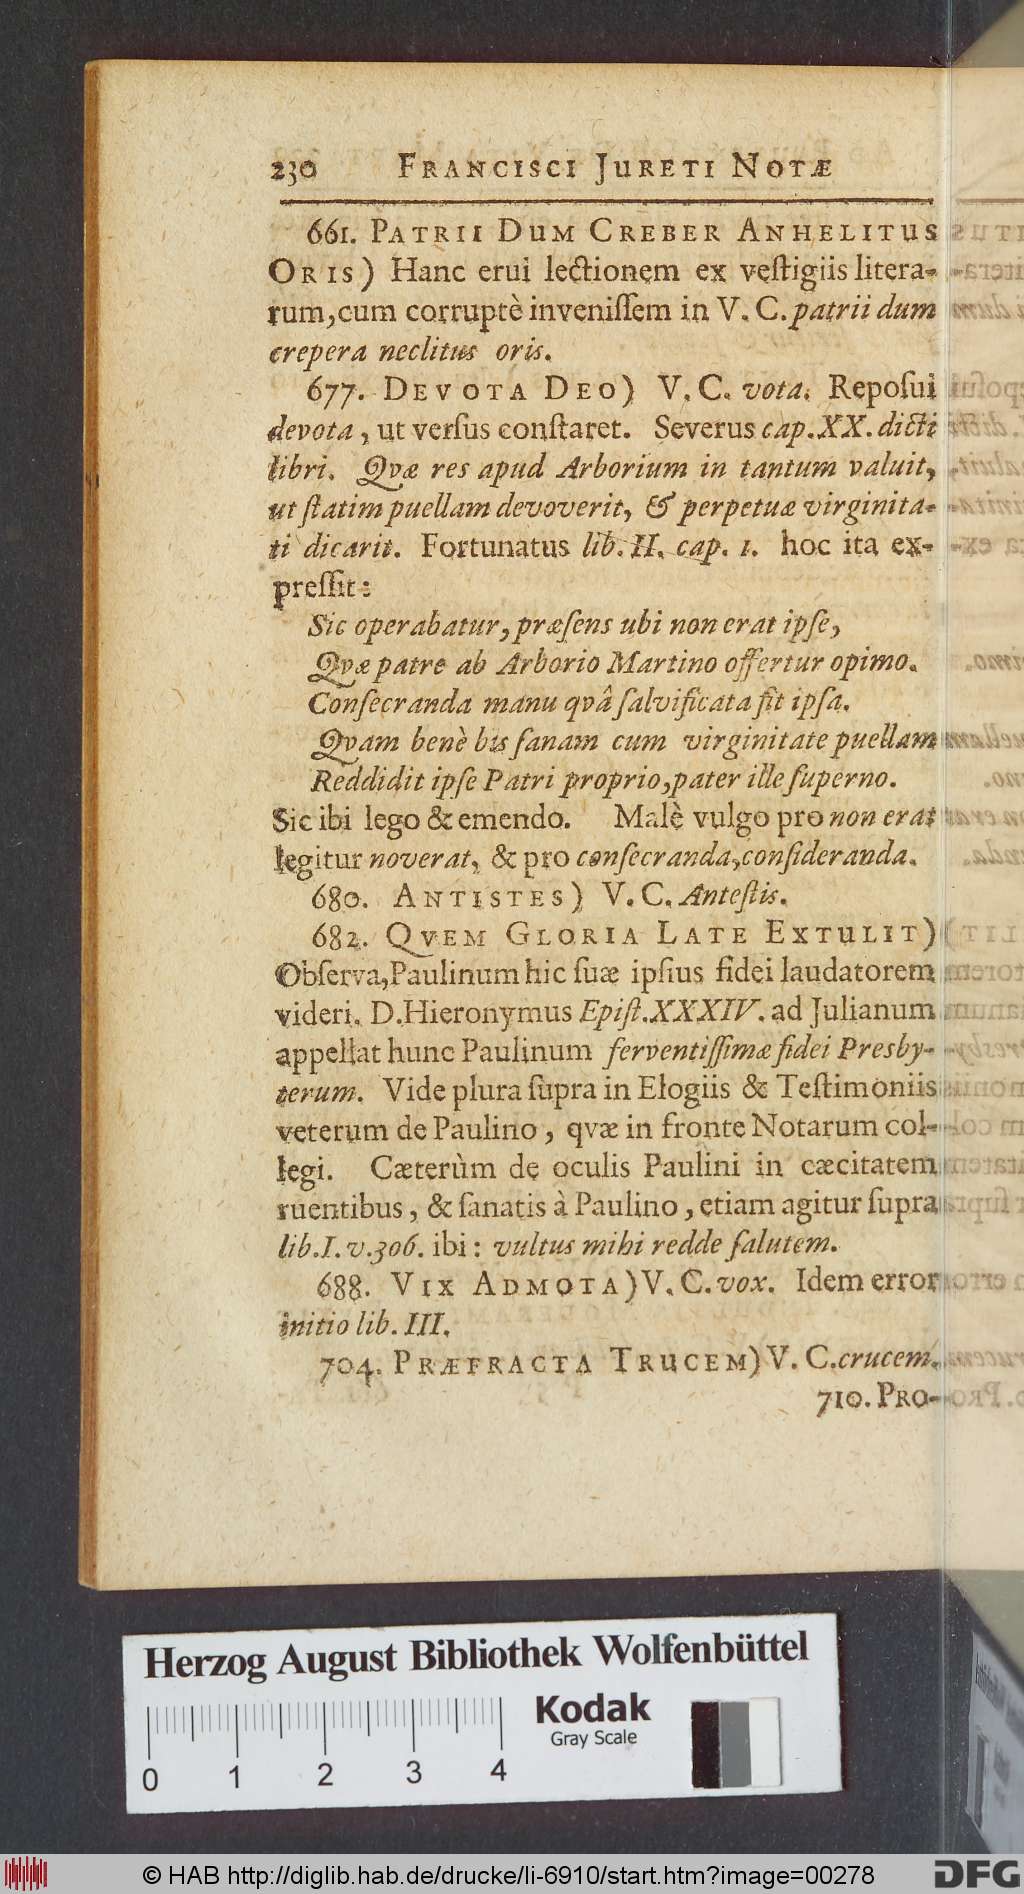 230 FRANCISCI JURETI NOTÆ
661. PATRII DUM CREBER ANHELITUS
ORIS) Hanc erui lectionem ex veſtigiis litera-
rum, cum corruptè inveniſſem in V. C. patrii dum
crepera neclitus oris.
677. DEVOTA DEO) V. C. vota. Repoſui
devota, ut verſus conſtaret. Severus cap. XX. dicti
libri. Qvæ res apud Arborium in tantum valuit,
ut ſtatim puellam devoverit, & perpetuæ virginita-
ti dicarit. Fortunatus lib. II. cap. 1. hoc ita ex-
preſſit:
Sic operabatur, præſens ubi non erat ipſe,
Qvæ patre ab Arborio Martino offertur opimo.
Conſecranda manu qvâ ſalvificata ſit ipſa.
Qvam benè bis ſanam cum virginitate puellam
Reddidit ipſe Patri proprio, pater ille ſuperno.
Sic ibi lego & emendo. Malè vulgo pro non erat
legitur noverat, & pro conſecranda, conſideranda.
680. ANTISTES) V. C. Anteſtis.
682. QVEM GLORIA LATE EXTULIT)
Obſerva, Paulinum hic ſuæ ipſius fidei laudatorem
videri. D. Hieronymus Epiſt. XXXIV. ad Julianum
appellat hunc Paulinum ferventiſſimæ fidei Presby-
terum. Vide plura ſupra in Elogiis & Teſtimoniis
veterum de Paulino, qvæ in fronte Notarum col-
legi. Cæterùm de oculis Paulini in cæcitatem
ruentibus, & ſanatis à Paulino, etiam agitur ſupra
lib. I. v. 306. ibi: vultus mihi redde ſalutem.
688. VIX ADMOTA) V. C. vox. Idem error
initio lib. III.
704. PRÆFRACTA TRUCEM) V. C. crucem.
710. PRO-
Herzog August Bibliothek Wolfenbüttel
Kodak
Gray Scale
0 1 2 3 4
© HAB http://diglib.hab.de/drucke/li-6910/start.htm?image=00278
DFG